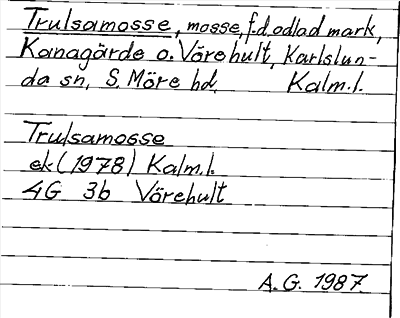 Trulsamosse, mosse, f.d. odlad mark,
Kanagärde o. Vörehult, Karlslun-
da sn, S. Möre hd. Kalm.l.
Trulsamosse
ek (1978) Kalm.l.
4G 3b Vörehult
A.G. 1987.